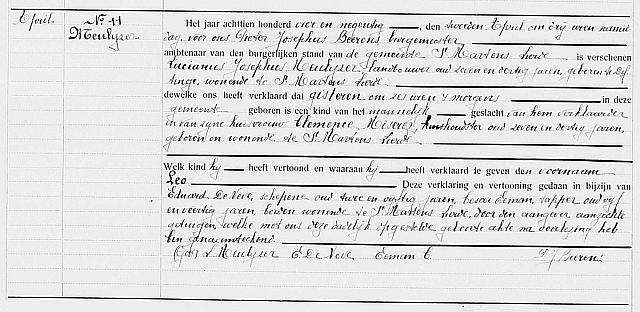 April.
N.º 11
Meulyzer
Het jaar achttien honderd vier en negentig, den tweeden April om drij uren namid
dag, voor ons Pieter Josephus Beerens burgemeester
ambtenaar van den burgerlijken stand van de gemeente St Martens lierde is verschenen
Lucianus Josephus Meulyzer, landbouwer oud zeven en dertig jaren, geboren te Def
tinge, wonende te St Martens lierde
dewelke ons heeft verklaard dat gisteren om zes uren 's morgens in deze
gemeente geboren is een kind van het mannelijk geslacht van hem verklaarder
en van zyne huisvrouw Clemence huishoudster oud zeven en dertig jaren,
geboren en wonende te St Martens lierde.
Welk kind hij heeft vertoond en waaraan hij heeft verklaard te geven den voornaam
Leo
Deze verklaring en vertooning gedaan in bijzijn van
Eduard De Neve, schepene oud twee en vijftig jaren, Eeman, oud vijf
en veertig jaren, beiden wonende te St Martens lierde, door den aangever aangezochte
getuigen, welke met ons deze dadelijk opgestelde geboorte akte na voorlezing heb
ben onderteekend.
L Meulyzer E. De Neve. Eeman C. P J Beerens